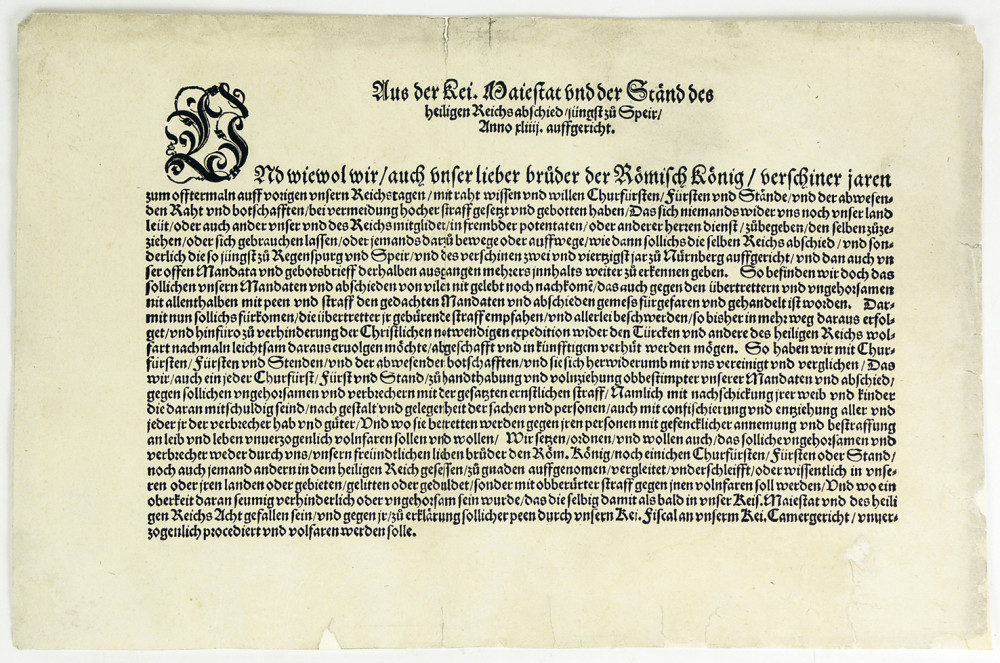 Aus der Kei. Maiestat vnd der Ständ des
heiligen Reichs abschied / jüngst zů Speir /
Anno xliiij. auffgericht.
VNd wiewol wir / auch vnser lieber brůder der Römisch König / verschiner jaren
zum offtermaln auff vorigen vnsern Reichstagen / mit raht wissen vnd willen Churfürsten / Fürsten vnd Stände / vnd der abwesen-
den Raht vnd botschafften / bei vermeidung hocher straff gesetzt vnd gebotten haben / Das sich niemands wider vns noch vnser land
leüt / oder auch ander vnser vnd des Reichs mitglider / in frembder potentaten / oder anderer herren dienst / zůbegeben / den selben zůze-
ziehen / oder sich gebrauchen lassen / oder jemands darzů bewege oder auffwege / wie dann sollichs die selben Reichs abschied / vnd son-
derlich die so jüngst zů Regenspurg vnd Speir / vnd des verschinen zwei vnd vierzigst jar zů Nürnberg auffgericht / vnd dan auch vn
ser offen Mandata vnd gebotsbrieff derhalben ausgangen mehrers jnnhalts weiter zů erkennen geben. So befinden wir doch das
sollichen vnsern Mandaten vnd abschieden von vilen nit gelebt noch nachkomē / das auch gegen den übertrettern vnd vngehorsamen
nit allenthalben mit peen vnd straff den gedachten Mandaten vnd abschieden gemess fürgefaren vnd gehandelt ist worden. Dar-
mit nun sollichs fürkomen / die übertretter jr gebürende straff empfahen / vnd allerlei beschwerden / so bisher in mehr weg daraus erfol-
get / vnd hinfüro zů verhinderung der Christlichen notwendigen expedition wider den Türcken vnd andere des heiligen Reichs wol-
fart nachmaln leichtsam daraus eruolgen möchte / abgeschafft vnd in künfftigem verhüt werden mögen. So haben wir mit Chur-
fürsten / Fürsten vnd Stenden / vnd der abwesenden botschafften / vnd sie sich herwiderumb mit vns vereinigt vnd verglichen / Das
wir / auch ein jeder Churfürst / Fürst vnd Stand / zů handthabung vnd volnziehung obbestimpter vnserer Mandaten vnd abschied /
gegen sollichen vngehorsamen vnd verbrechern mit der gesatzten ernstlichen straff / Namlich mit nachschickung jrer weib vnd kinder
die daran mitschuldig seind / nach gestalt vnd gelegenheit der sachen vnd personen / auch mit confischierung vnd entziehung aller vnd
jeder jr der verbrecher hab vnd gůter / Vnd wo sie betretten werden gegen jren personen mit gefencklicher annemung vnd bestraffung
an leib vnd leben vnuerzogenlich volnfaren sollen vnd wollen / Wir setzen / ordnen / vnd wollen auch / das solliche vngehorsamen vnd
verbrecher weder durch vns / vnsern freündtlichen lieben brůder den Röm. König / noch einichen Churfürsten / Fürsten oder Stand /
noch auch jemand andern in dem heiligen Reich gesessen / zů gnaden auffgenomen / vergleitet / vnderschleifft / oder wissentlich in vnse-
ren oder jren landen oder gebieten / gelitten oder geduldet / sonder mit obberürter straff gegen jnen volnfaren soll werden / Vnd wo ein
oberkeit daran seumig verhinderlich oder vngehorsam sein wurde / das die selbig damit als bald in vnser Keis. Maiestat vnd des heili
gen Reichs Acht gefallen sein / vnd gegen jr / zů erklärung sollicher peen durch vnsern Kei. Fiscal an vnserm Kei. Camergericht / vnuer-
zogenlich procediert vnd volfaren werden solle.